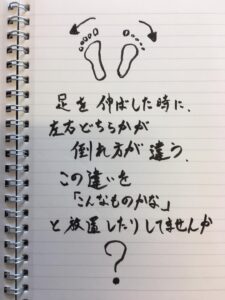 足を伸ばした時に、
左右どちらかが
倒れ方が違う。
この違いを
「こんなものかな」
と放置したりしてませんか
？